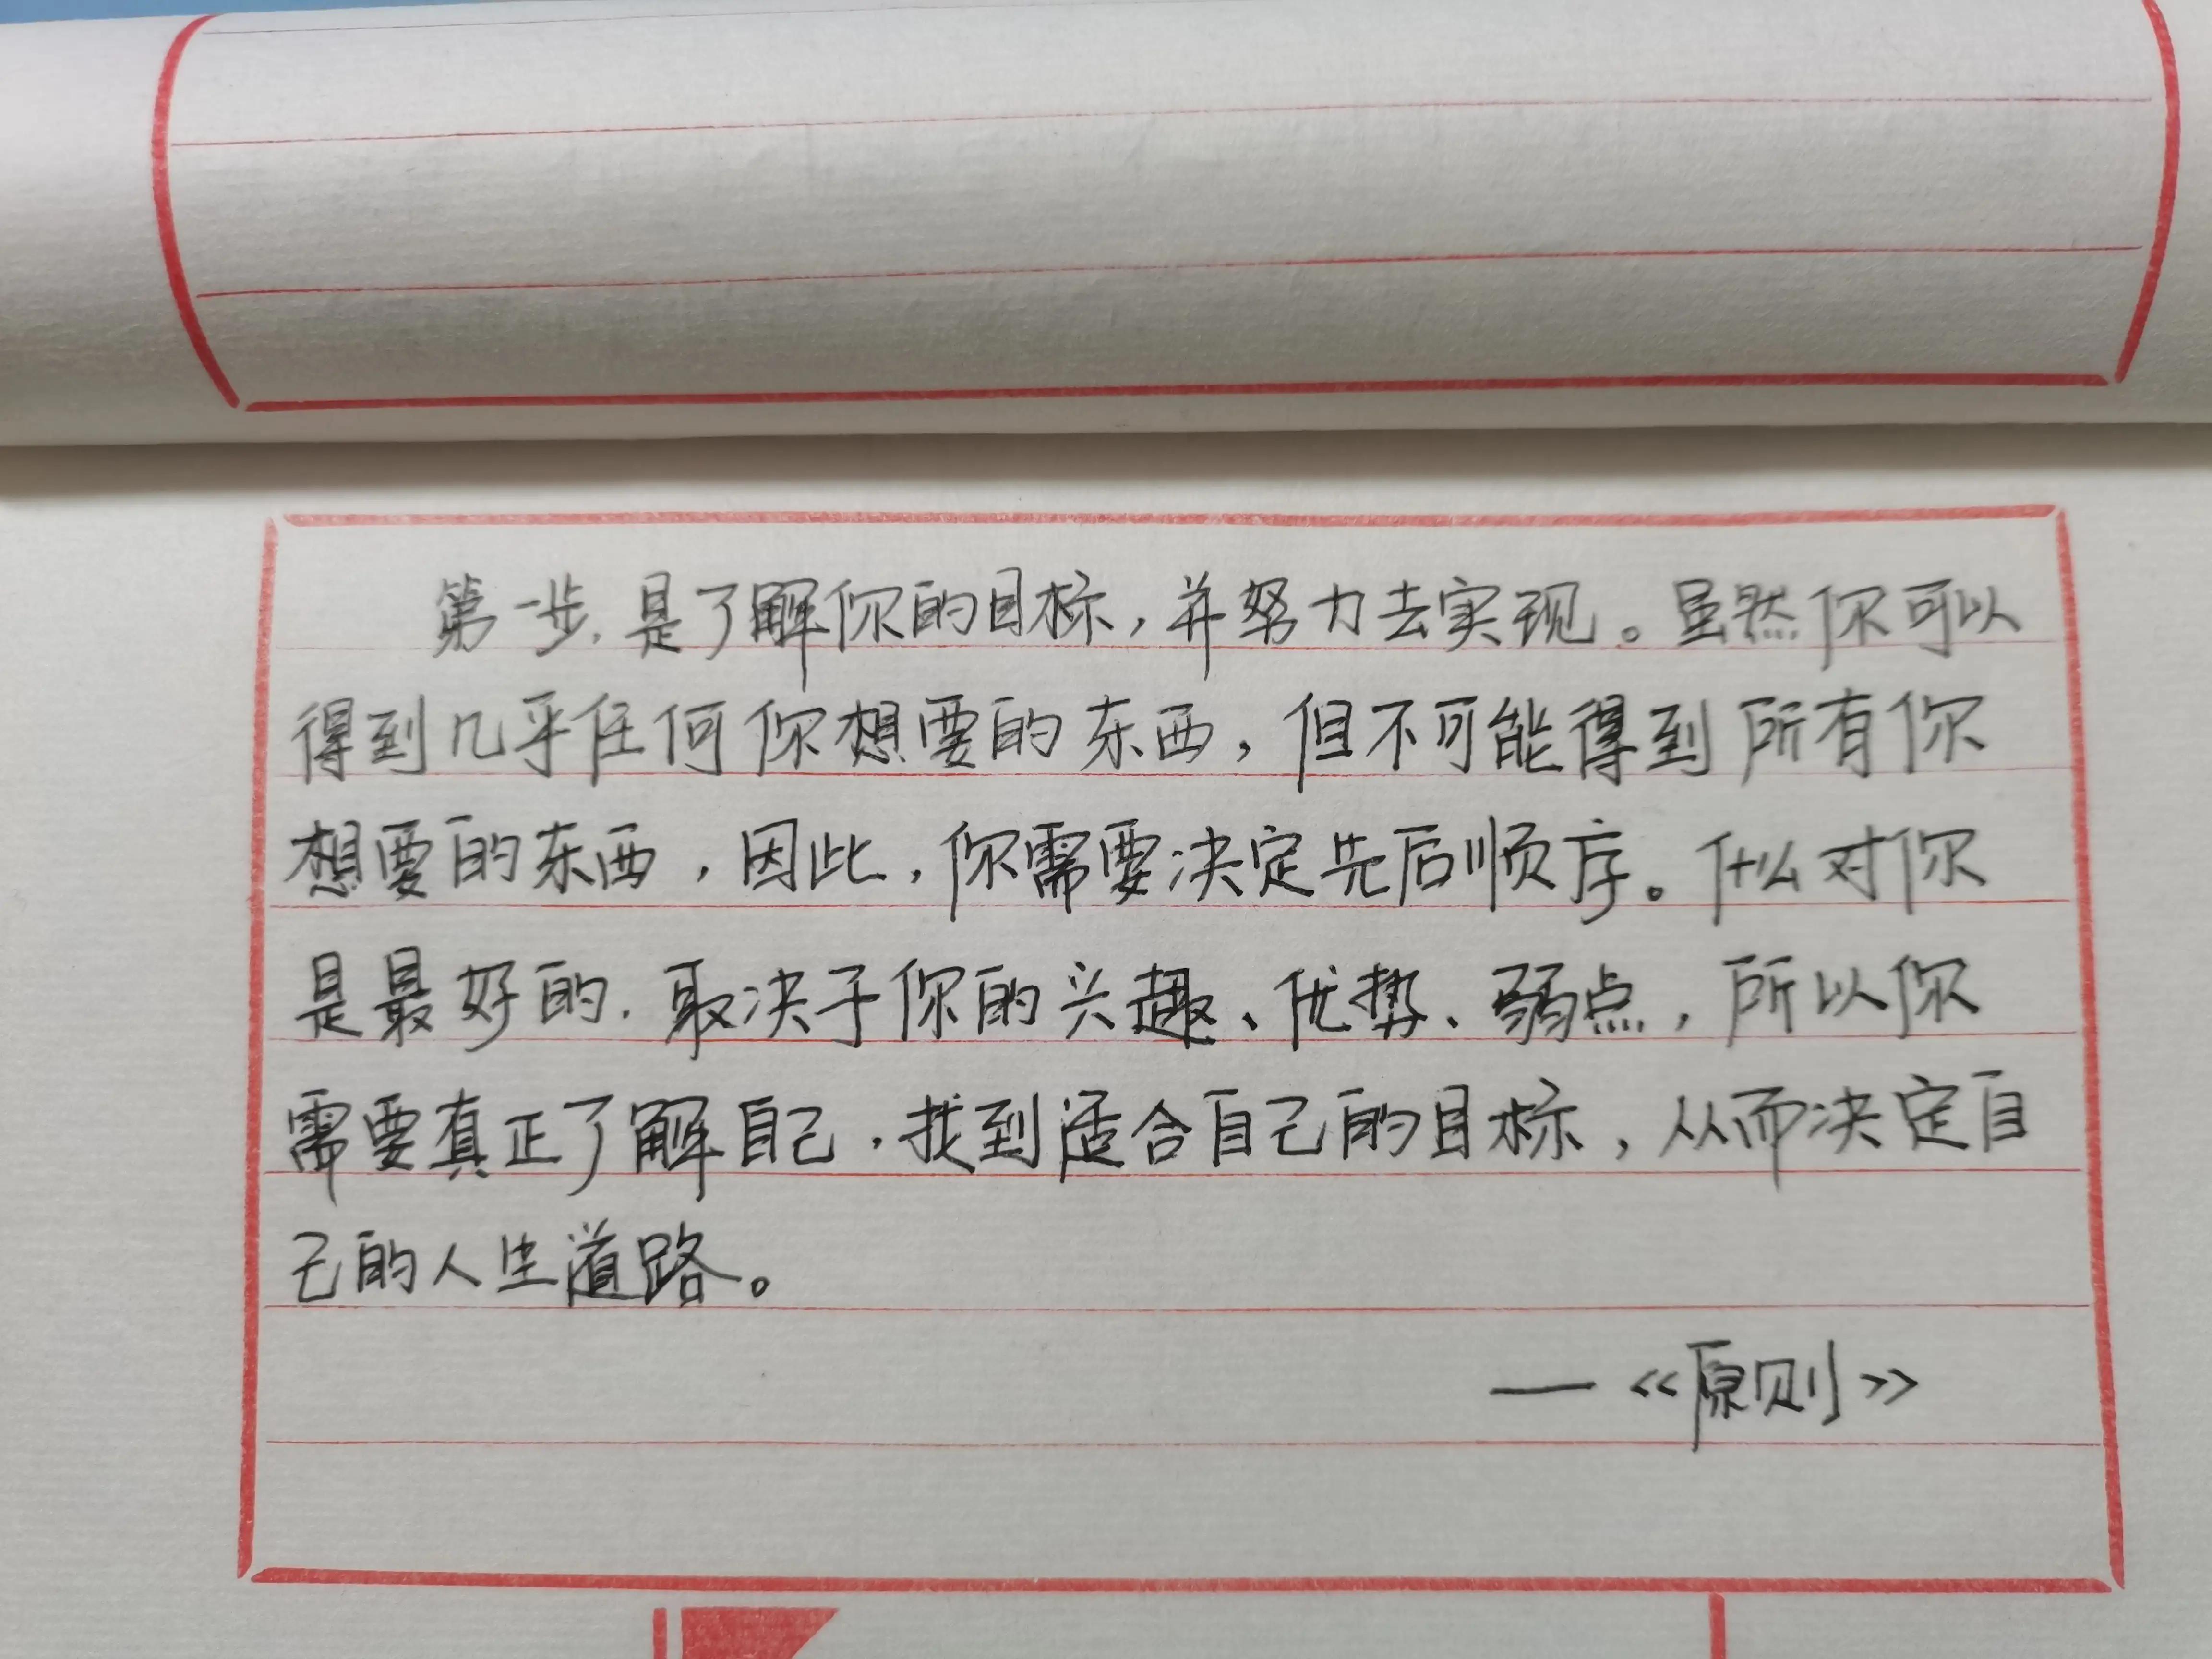 第一步,是了解你的目标,并努力去实现。虽然你可以
得到几乎任何你想要的东西,但不可能得到所有你
想要的东西,因此,你需要决定先后顺序。什么对你
是最好的,取决于你的兴趣、优势、弱点,所以你
需要真正了解自己,找到适合自己的目标,从而决定自
己的人生道路。
——《原则》